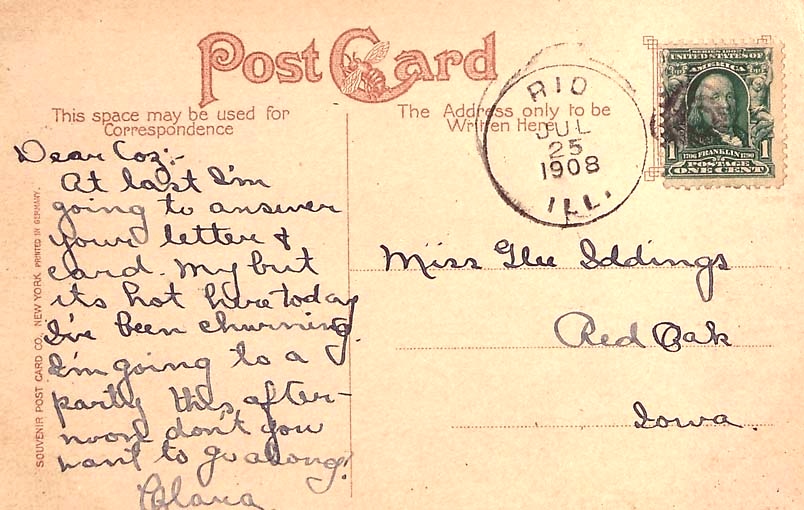 Post Card
This space may be used for
Correspondence
The Address only to be
Written Here
RIO
JUL
25
1908
ILL.
SERIES 1902
UNITED STATES OF
AMERICA
1 1
1706 FRANKLIN 1790
POSTAGE
ONE CENT
Dear Coz;-
At last I'm
going to answer
your letter &
card. My but
its hot here today
I've been churning.
I'm going to a
party this after-
noon don't you
want to go along?
Miss Glee Iddings
Red Oak
Iowa.
SOUVENIR POST CARD CO., NEW YORK PRINTED IN GERMANY.